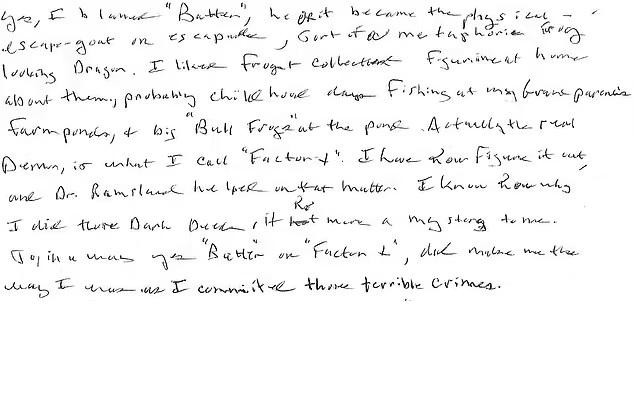 yes, I blamed "Batter", he or it became the physical -
escape-goat or escapade, Sort of a metaphoric frog
looking Dragon. I liked frogs & collected figurine at home
about them, probably childhood days fishing at my Grandparents
farm ponds, & big "Bull Frogs" at the pond. Actually the real
Demon, is what I call "Factor X". I have now figure it out,
and Dr. Ramsland helped on that matter. I know now why
I did those Dark Deeds, it no more a mystery to me.
So, in a way yes "Batter" or "Factor X", did make me the
way I was as I committed those terrible crimes.